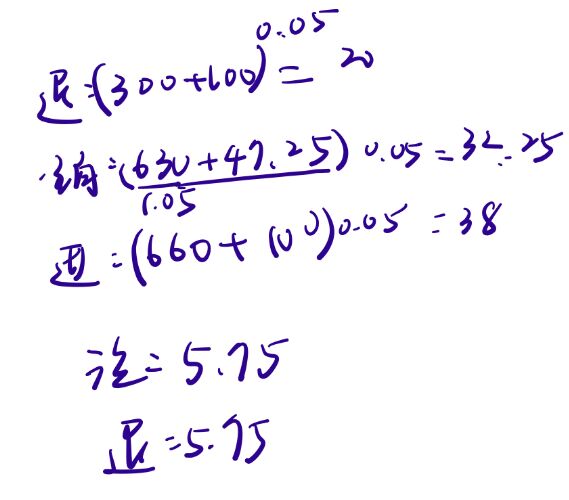 退=(300+100)0.05=20
銷=(630+47.25)/1.05 0.05=32.25
(660+100)0.05=38
=5.75
退=5.75